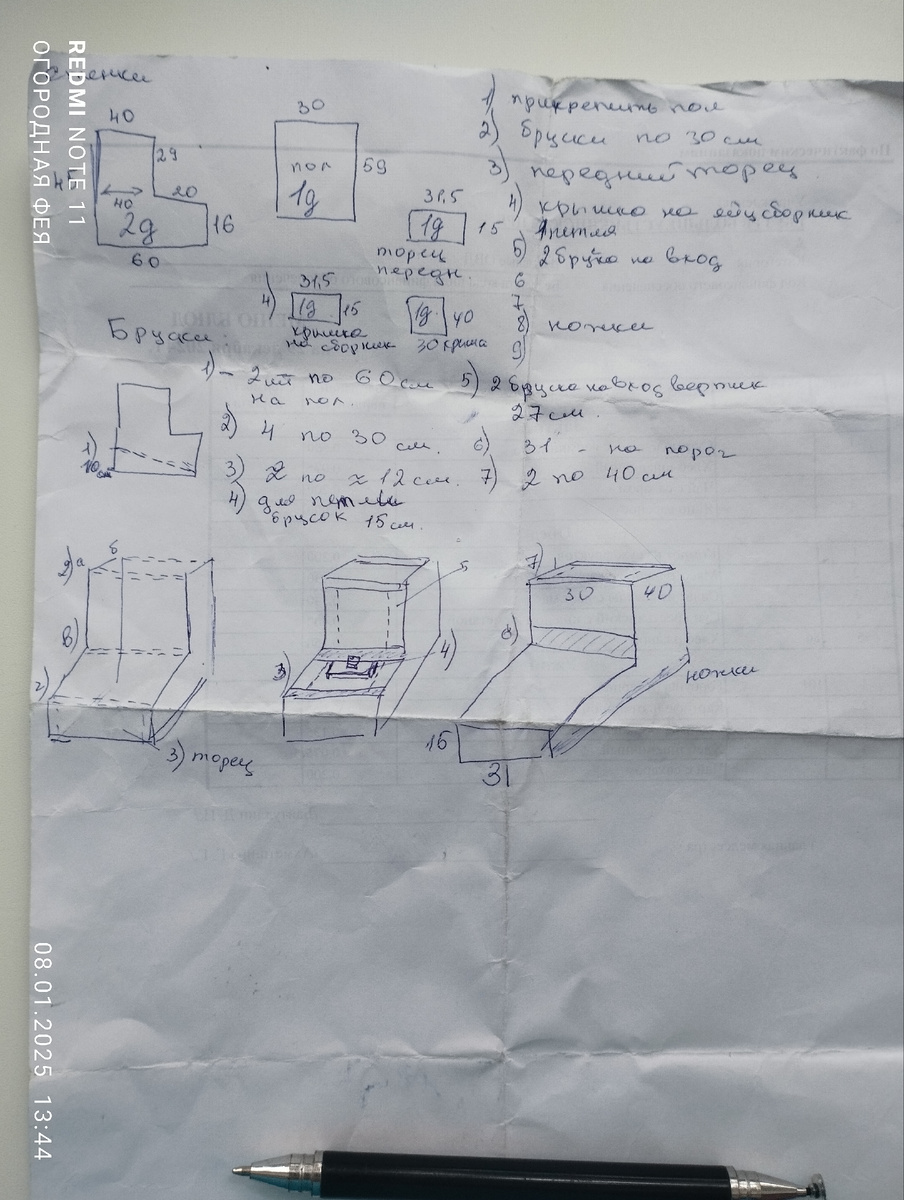 стенки
40
29
20
40
2д
16
60
30
пол
1д
59
31,5
1д
15
торец
передн.
4)
31,5
1д
15
крышка
на сборник
1д
40
30 крыша
1) прикрепить пол
2) бруски по 30 см
3) передний торец
4) крышка на яйцсборник
петля
5) 2 бруска на вход
6
7
8) ножки
9)
Бруски
1) - 2шт по 60 см
на пол.
2) 4 по 30 см.
3) 2 по ≈ 12 см.
4) для петли
брусок 15 см.
5) 2 бруска на вход вертик
27 см.
6) 31 - на порог
7) 2 по 40 см
1)
10 см
2) а
б
в)
г)
3) торец
3)
5
4)
7)
30
40
6)
ножки
15
31
REDMI NOTE 11
ОГОРОДНАЯ ФЕЯ
08.01.2025 13:44